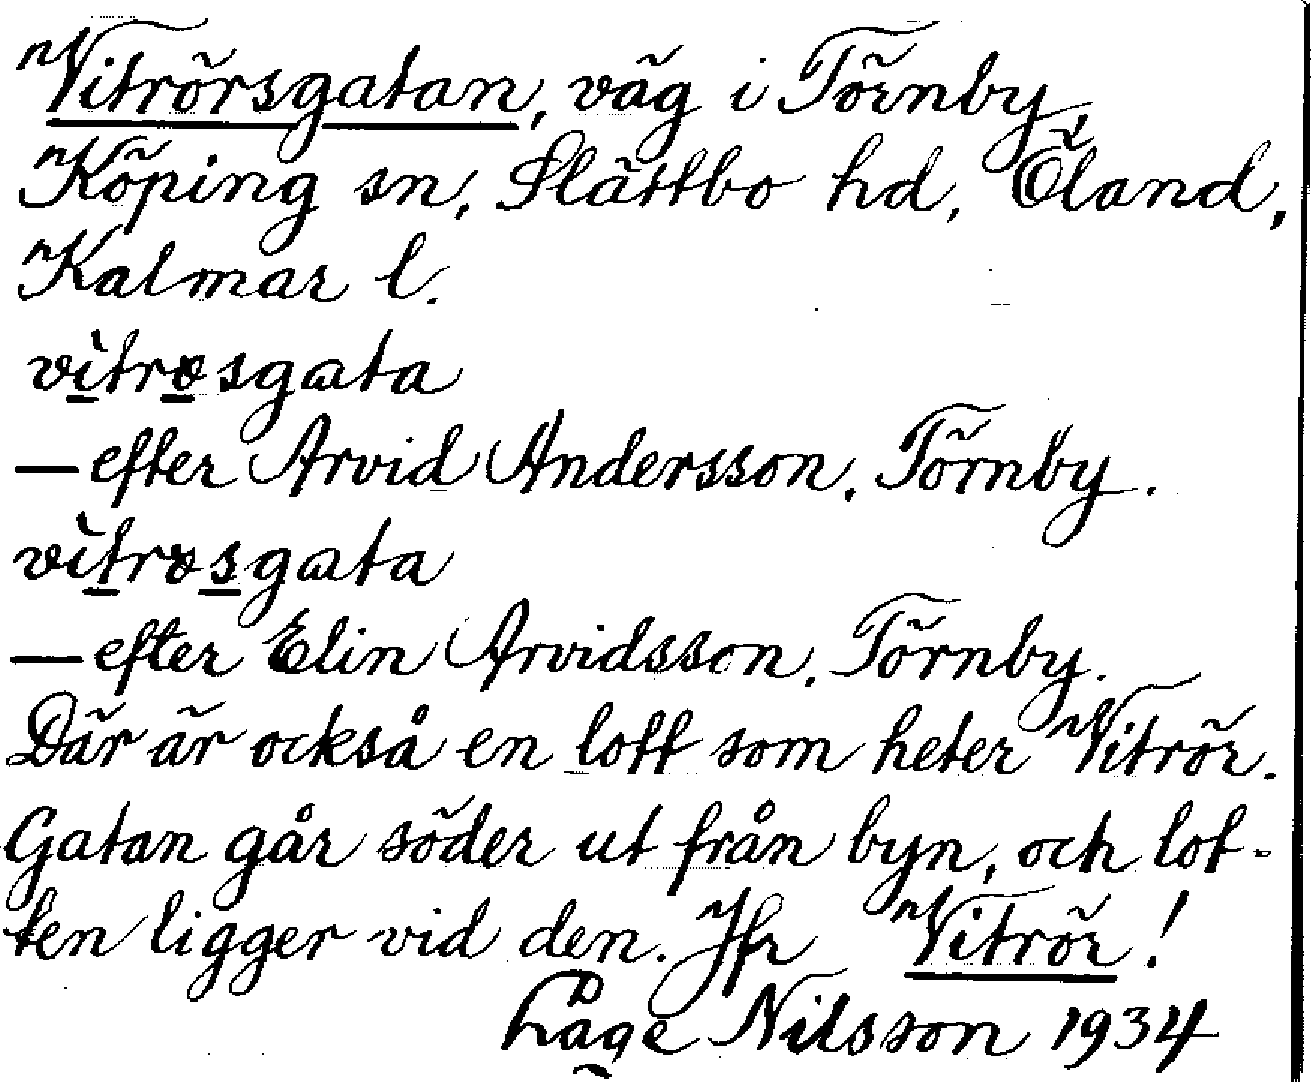 Vitrörsgatan, väg i Törnby,
Köping sn, Slättbo hd, Öland,
Kalmar l.
vìtrøsgata
— efter Arvid Andersson, Törnby.
vìtrøsgata
— efter Elin Arvidsson, Törnby.
Där är också en lott som heter Vitrör.
Gatan går söder ut från byn, och lot-
ten ligger vid den. Jfr Vitrör!
Låge Nilsson 1934